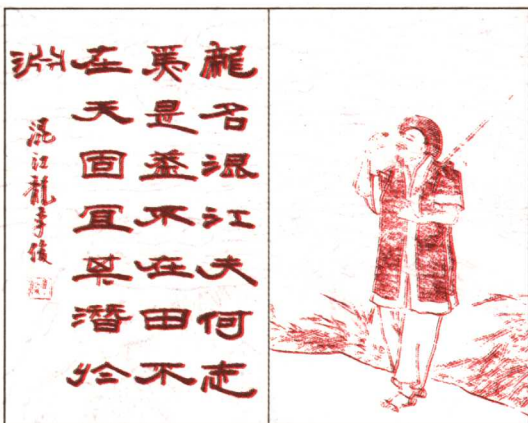 龍名混江夫何志
焉是蓋不在田不
在天固宜其潛於
淵
混江龍李俊